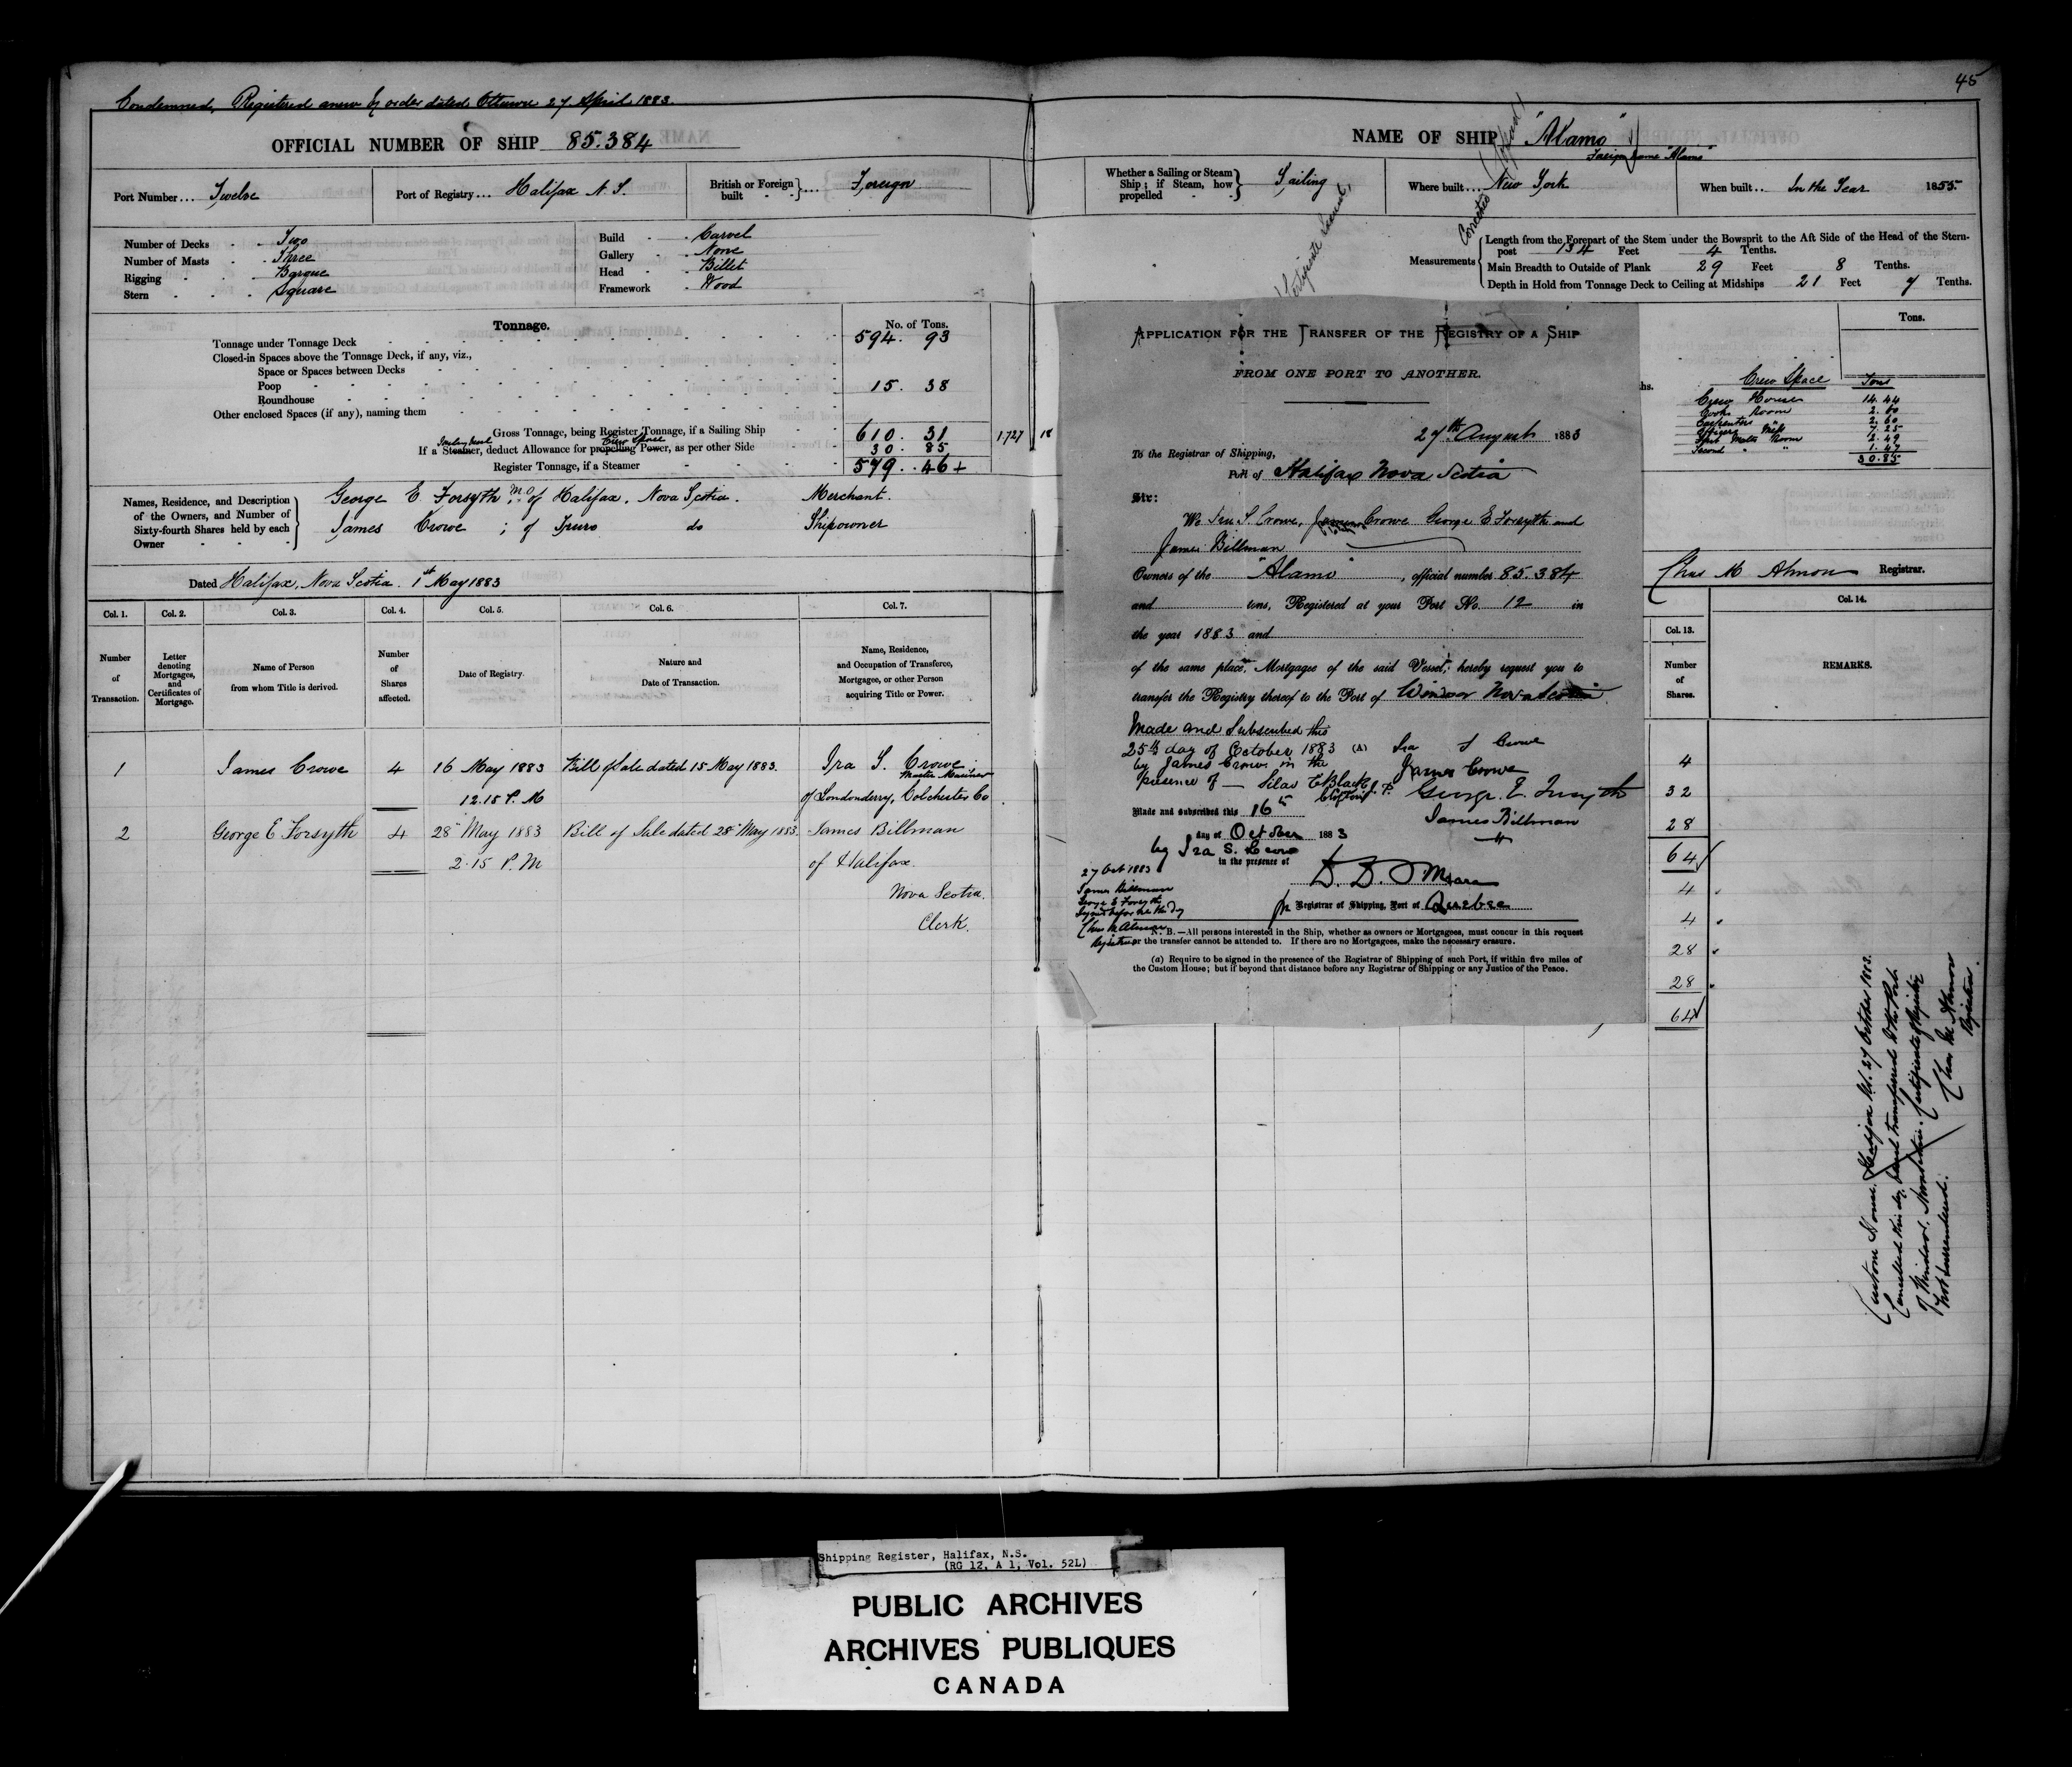 45
Condemned, Registered anew by order dated Ottawa 27 April 1883.
OFFICIAL NUMBER OF SHIP 85.384
Port Number... Twelve
Port of Registry... Halifax N.S.
British or Foreign built }... Foreign
Number of Decks - - Two
Number of Masts - Three
Rigging - - Barque
Stern - - - Square
Build - - Carvel
Gallery - - None
Head - - Billet
Framework - Wood
Tonnage.
No. of Tons.
Tonnage under Tonnage Deck 594. 93
Closed-in Spaces above the Tonnage Deck, if any, viz.,
Space or Spaces between Decks
Poop 15. 38
Roundhouse
Other enclosed Spaces (if any), naming them
Gross Tonnage, being Register Tonnage, if a Sailing Ship 610. 31 1727 18
Crew Space
If a Steamer, deduct Allowance for propelling Power, as per other Side 30. 85
Register Tonnage, if a Steamer 579. 46+
Names, Residence, and Description of the Owners, and Number of Sixty-fourth Shares held by each Owner
George E. Forsyth M.O. of Halifax, Nova Scotia. Merchant.
James Crowe ; of Truro do Shipowner
Dated Halifax, Nova Scotia. 1st May 1883
Col. 1. Col. 2. Col. 3. Col. 4. Col. 5. Col. 6. Col. 7.
Number of Transaction.
Letter denoting Mortgages, and Certificates of Mortgage.
Name of Person from whom Title is derived.
Number of Shares affected.
Date of Registry.
Nature and Date of Transaction.
Name, Residence, and Occupation of Transferee, Mortgagee, or other Person acquiring Title or Power.
1 James Crowe 4 16 May 1883 Bill of Sale dated 15 May 1883. Ira S. Crowe
Master Mariner
12.15 P.M of Londonderry, Colchester Co
2 George E Forsyth 4 28 May 1883 Bill of Sale dated 28 May 1883. James Billman
2.15 P.M of Halifax.
Nova Scotia.
Clerk.
NAME OF SHIP "Alamo"
Foreign name "Alamo"
Whether a Sailing or Steam Ship; if Steam, how propelled } Sailing
Where built... New York
When built.. In the Year 1855.
Measurements
Length from the Forepart of the Stem under the Bowsprit to the Aft Side of the Head of the Stern-
post 134 Feet 4 Tenths.
Main Breadth to Outside of Plank 29 Feet 8 Tenths.
Depth in Hold from Tonnage Deck to Ceiling at Midships 21 Feet 7 Tenths.
Tons.
Crew Space Tons
Crew House 14.44
Cooks Room 2.60
Carpenters " 2.60
Officers Mess 7.25
First Mates Room 2.49
Second " " 1.47
30.85
Chas M Almon Registrar.
APPLICATION FOR THE TRANSFER OF THE REGISTRY OF A SHIP
FROM ONE PORT TO ANOTHER.
27th August 1883
To the Registrar of Shipping,
Port of Halifax Nova Scotia
Sir:
We Ira S. Crowe, James Crowe George E Forsyth and
James Billman
Owners of the "Alamo", official number 85.384
and tons, Registered at your Port No. 12 in
the year 1883 and
of the same place, Mortgagee of the said Vessel, hereby request you to
transfer the Registry thereof to the Port of Windsor Nova Scotia.
Made and Subscribed this
25th day of October 1883 (A) Ira S Crowe
by James Crowe in the James Crowe
presence of — Silas E Black J.P. George. E. Forsyth
Made and subscribed this 16th James Billman
day of October 1883
by Ira S. Crowe
in the presence of
D. D. O'Meara
Registrar of Shipping, Port of Quebec
27 Oct 1883
James Billman
George E Forsyth
Signed before me this day
Chas M Almon
Registrar
N. B.—All persons interested in the Ship, whether as owners or Mortgagees, must concur in this request
or the transfer cannot be attended to. If there are no Mortgagees, make the necessary erasure.
(a) Require to be signed in the presence of the Registrar of Shipping of such Port, if within five miles of
the Custom House; but if beyond that distance before any Registrar of Shipping or any Justice of the Peace.
Col. 13. Col. 14.
Number of Shares.
REMARKS.
4
32
28
64
4
4
28
28
64
Custom House. Halifax N.S. 27 October 1883.
Cancelled this day, and transferred to the Port
of Windsor, Nova Scotia. Certificate of Registry
not surrendered.
Chas M Almon
Registrar.
Shipping Register, Halifax, N.S.
(RG 12, A 1, Vol. 52L)
PUBLIC ARCHIVES
ARCHIVES PUBLIQUES
CANADA